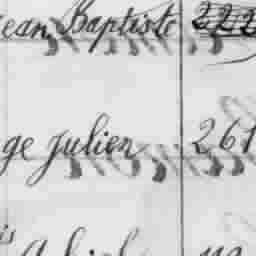 ean Baptiste 222
ge Julien 261
is